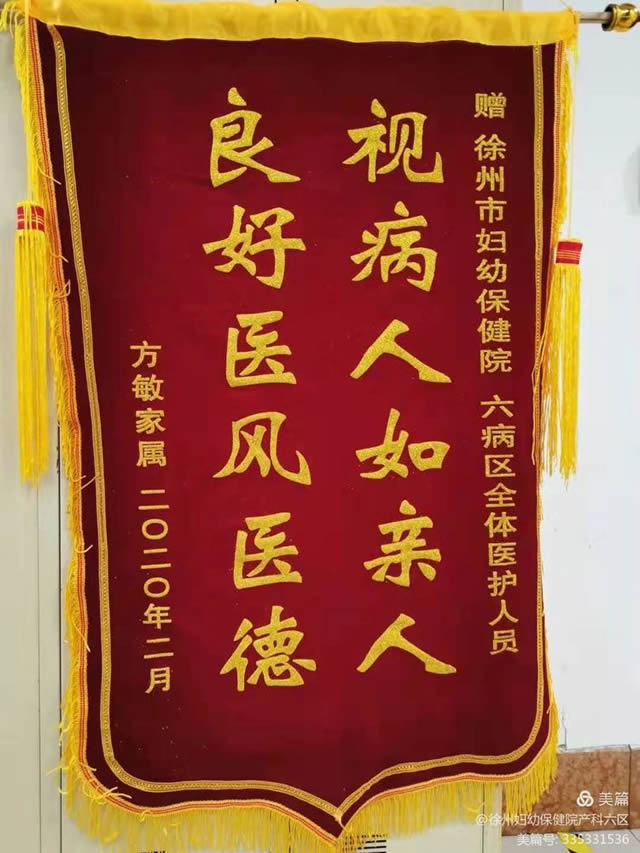 赠 徐州市妇幼保健院 六病区全体医护人员
视病人如亲人
良好医风医德
方敏家属 二〇二〇年二月
美篇
@徐州妇幼保健院产科六区
美篇号: 335331536